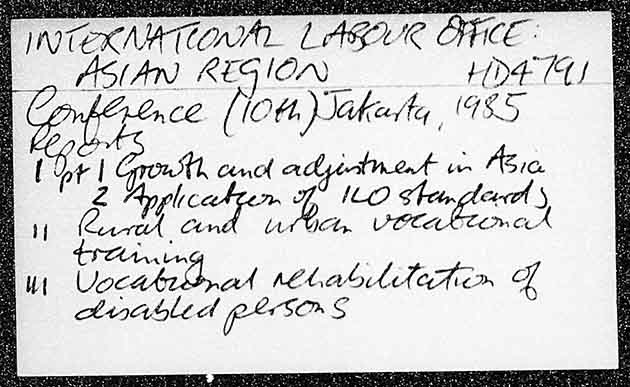 INTERNATIONAL LABOUR OFFICE:
ASIAN REGION HD4791
Conference (10th) Jakarta, 1985
Reports
I pt 1 Growth and adjustment in Asia
2 Application of ILO standards
II Rural and urban vocational
training
III Vocational rehabilitation of
disabled persons